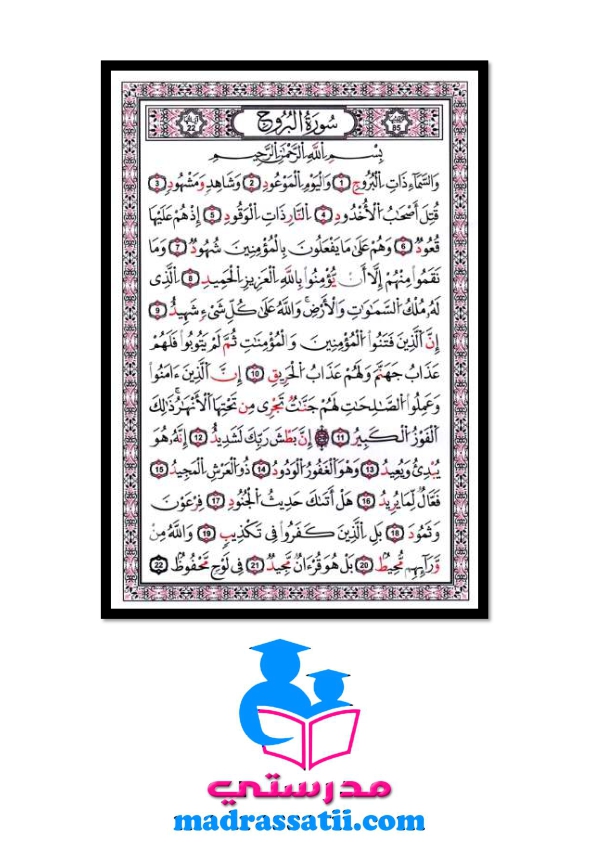 آياتها 22 سُورَةُ البُرُوجِ 85
بِسْمِ اللَّهِ الرَّحْمَٰنِ الرَّحِيمِ
وَالسَّمَاءِ ذَاتِ الْبُرُوجِ 1 وَالْيَوْمِ الْمَوْعُودِ 2 وَشَاهِدٍ وَمَشْهُودٍ 3
قُتِلَ أَصْحَابُ الْأُخْدُودِ 4 النَّارِ ذَاتِ الْوَقُودِ 5 إِذْ هُمْ عَلَيْهَا
قُعُودٌ 6 وَهُمْ عَلَىٰ مَا يَفْعَلُونَ بِالْمُؤْمِنِينَ شُهُودٌ 7 وَمَا
نَقَمُوا مِنْهُمْ إِلَّا أَنْ يُؤْمِنُوا بِاللَّهِ الْعَزِيزِ الْحَمِيدِ 8 الَّذِي
لَهُ مُلْكُ السَّمَٰوَٰتِ وَالْأَرْضِ وَاللَّهُ عَلَىٰ كُلِّ شَيْءٍ شَهِيدٌ 9
إِنَّ الَّذِينَ فَتَنُوا الْمُؤْمِنِينَ وَالْمُؤْمِنَٰتِ ثُمَّ لَمْ يَتُوبُوا فَلَهُمْ
عَذَابُ جَهَنَّمَ وَلَهُمْ عَذَابُ الْحَرِيقِ 10 إِنَّ الَّذِينَ ءَامَنُوا
وَعَمِلُوا الصَّٰلِحَٰتِ لَهُمْ جَنَّٰتٌ تَجْرِي مِن تَحْتِهَا الْأَنْهَٰرُ ذَٰلِكَ
الْفَوْزُ الْكَبِيرُ 11 إِنَّ بَطْشَ رَبِّكَ لَشَدِيدٌ 12 إِنَّهُ هُوَ
يُبْدِئُ وَيُعِيدُ 13 وَهُوَ الْغَفُورُ الْوَدُودُ 14 ذُو الْعَرْشِ الْمَجِيدُ 15
فَعَّالٌ لِّمَا يُرِيدُ 16 هَلْ أَتَىٰكَ حَدِيثُ الْجُنُودِ 17 فِرْعَوْنَ
وَثَمُودَ 18 بَلِ الَّذِينَ كَفَرُوا فِي تَكْذِيبٍ 19 وَاللَّهُ مِن
وَرَآئِهِم مُّحِيطٌ 20 بَلْ هُوَ قُرْءَانٌ مَّجِيدٌ 21 فِي لَوْحٍ مَّحْفُوظٍ 22
مدرستي
madrassatii.com